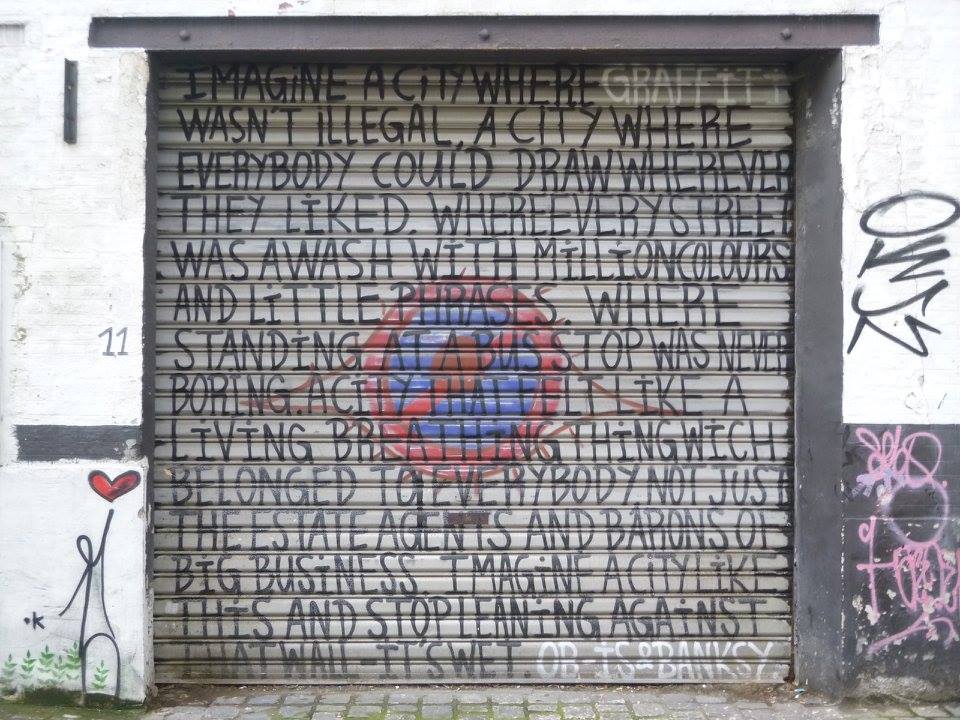 IMAGINE A CITY WHERE GRAFFITI
WASN'T ILLEGAL, A CITY WHERE
EVERYBODY COULD DRAW WHEREVER
THEY LIKED. WHERE EVERY STREET
WAS AWASH WITH MILLION COLOURS
AND LITTLE PHRASES. WHERE
STANDING AT A BUS STOP WAS NEVER
BORING. A CITY THAT FELT LIKE A
LIVING BREATHING THING WICH
BELONGED TO EVERYBODY NOT JUST
THE ESTATE AGENTS AND BARONS OF
BIG BUSINESS. IMAGINE A CITY LIKE
THIS AND STOP LEANING AGAINST
THAT WALL - IT'S WET. OB-IS & BANKSY
11
.K